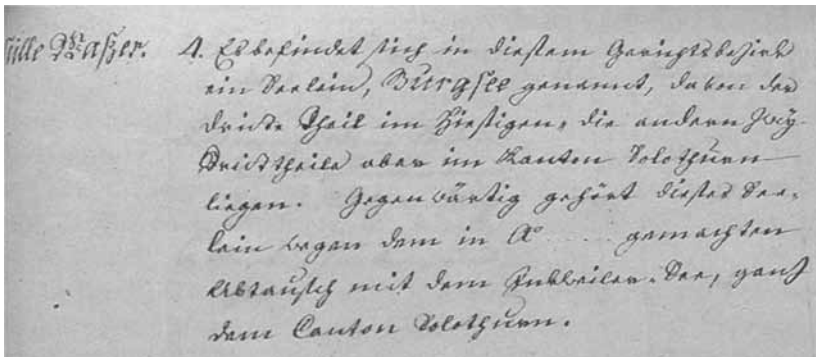 stille Waßer.
4. Es befindet sich in diesem Gerichtsbezirk
ein Seelein, Burgsee genannt, davon der
dritte Theil im hiesigen, die andern zwey
Dritttheile aber im Kanton Solothurn
liegen. Gegenwärtig gehört dieses See-
lein wegen dem in A° ..... gemachten
Abtausch mit dem Inkweiler-See, ganz
dem Canton Solothurn.